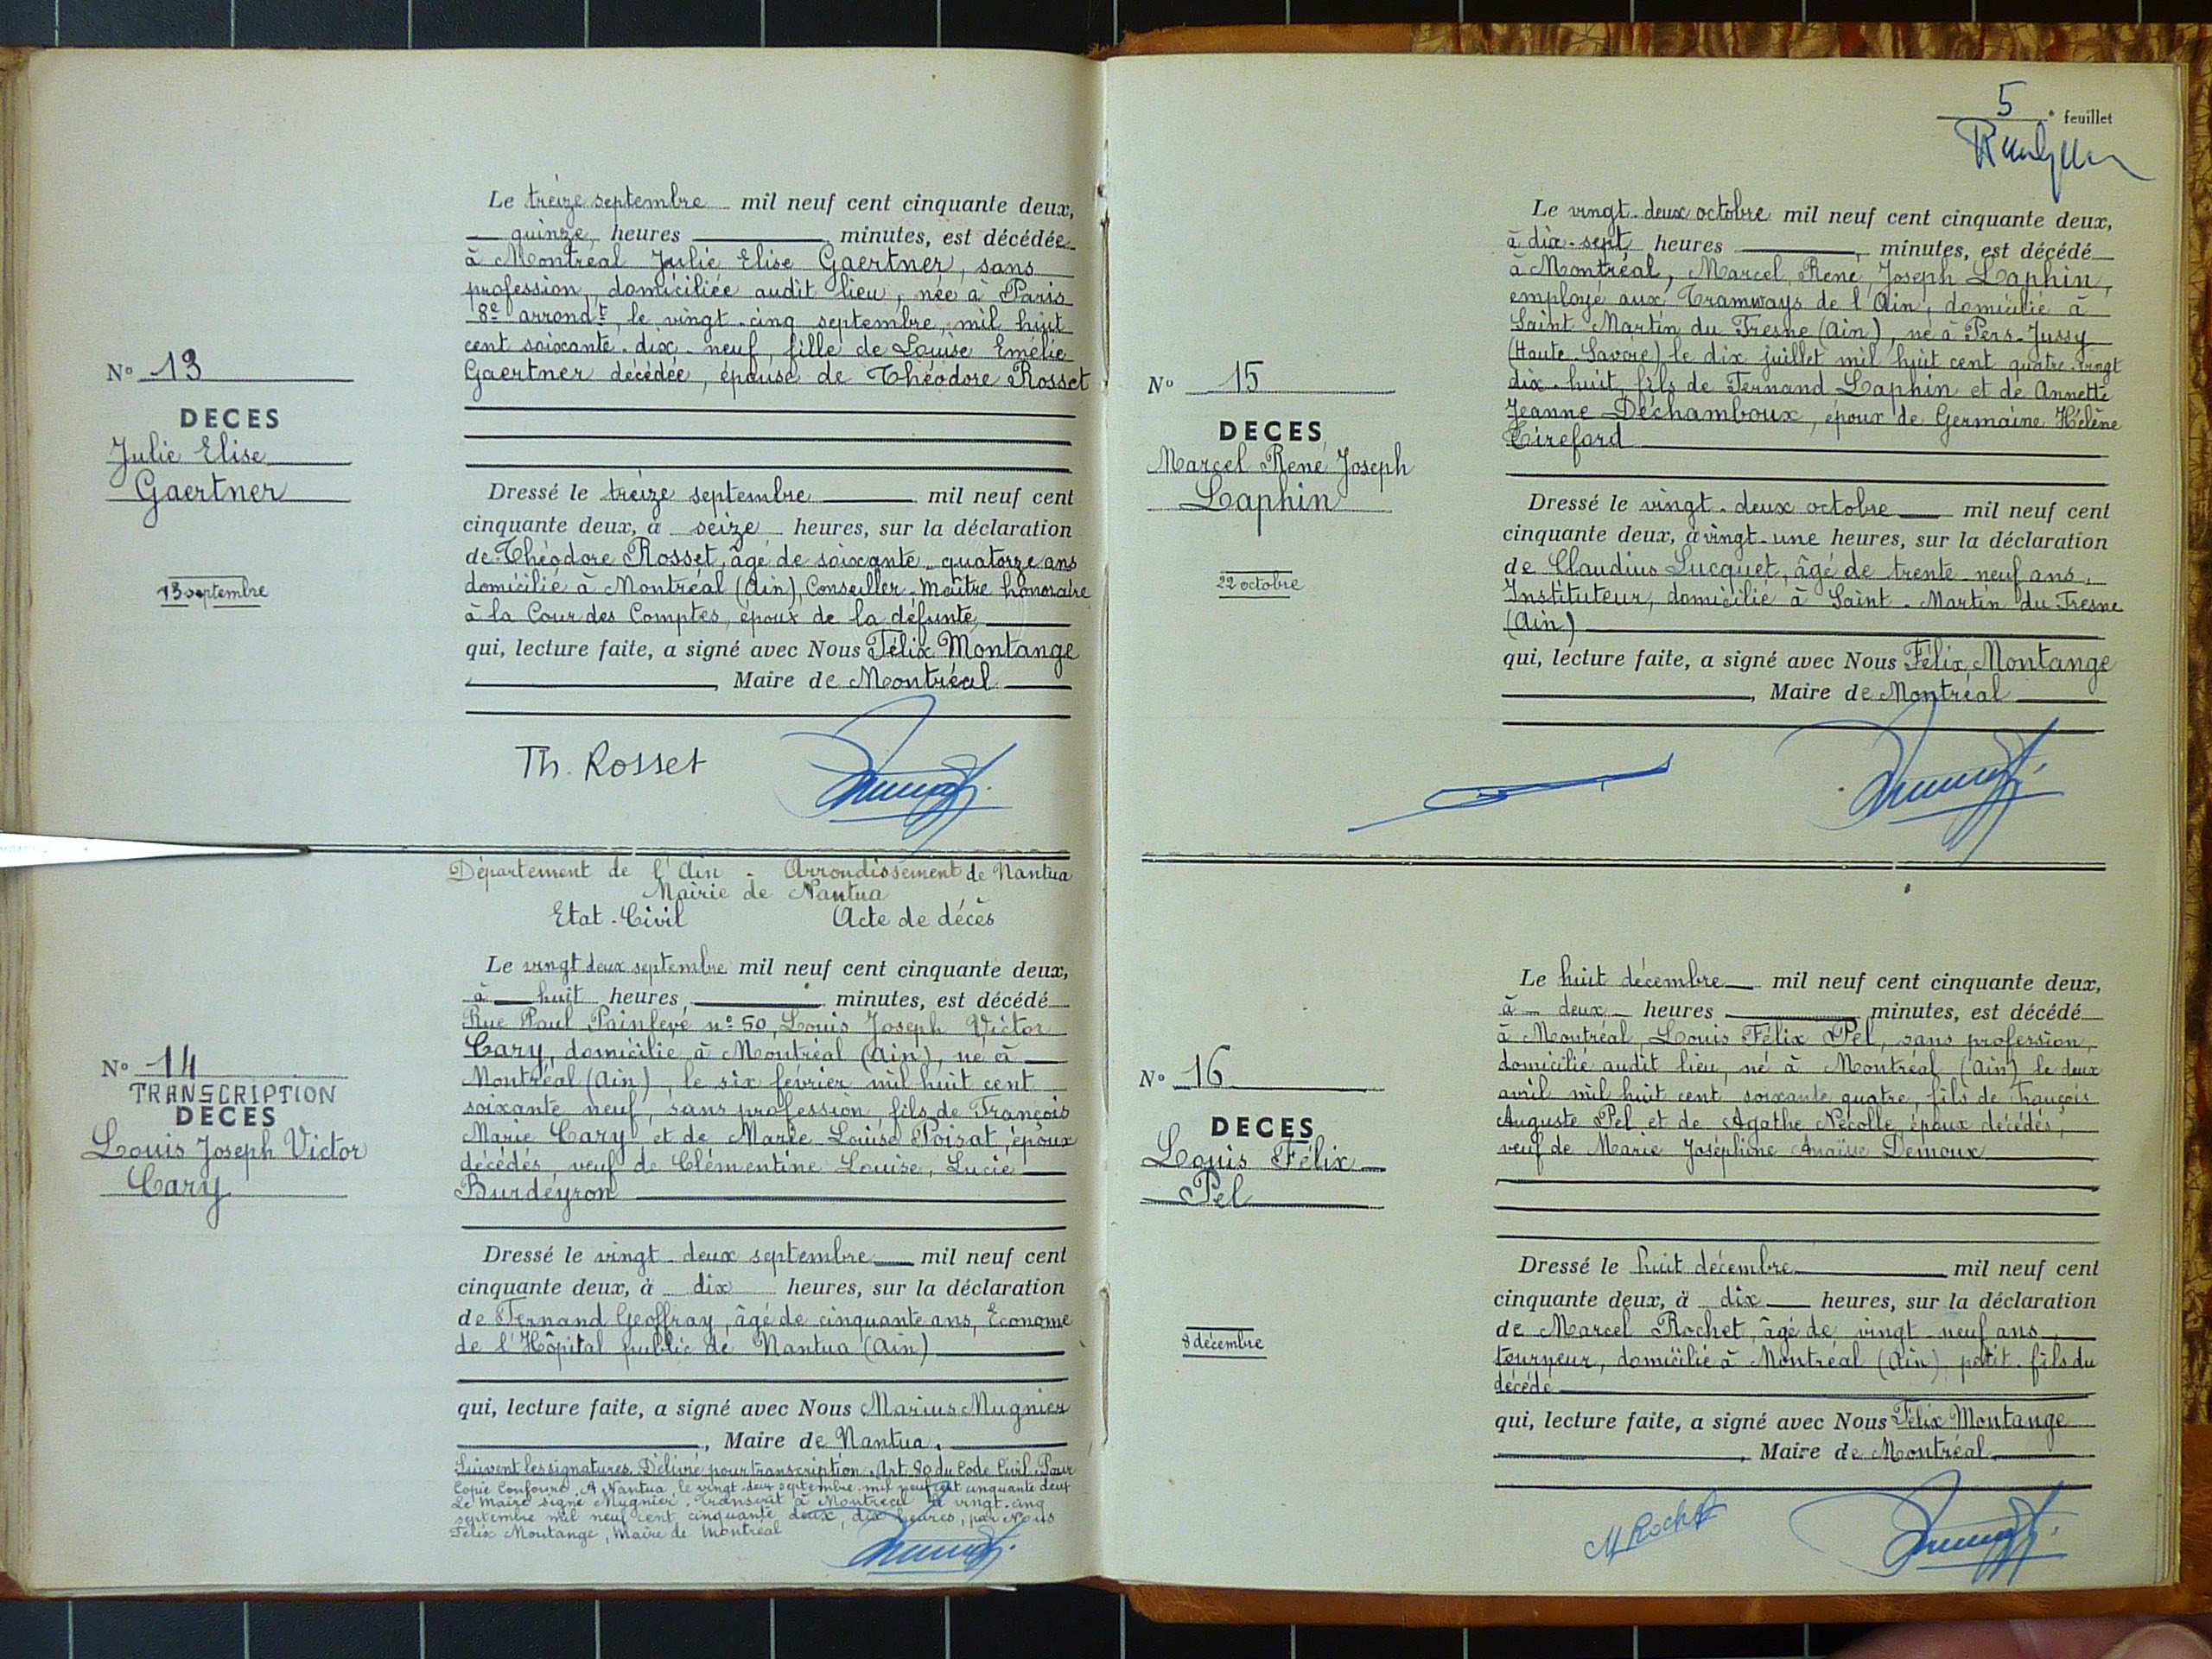 Le treize septembre mil neuf cent cinquante deux,
quinze, heures minutes, est décédée
à Montréal Julie Elise Gaertner, sans
profession, domiciliée audit lieu, née à Paris
8e arrondt, le vingt-cinq septembre, mil huit
cent soixante-dix-neuf, fille de Louise Emélie
Gaertner décédée, épouse de Théodore Rosset
N° 13
DECES
Julie Elise
Gaertner
13 septembre
Dressé le treize septembre mil neuf cent
cinquante deux, à seize heures, sur la déclaration
de Théodore Rosset, âgé de soixante-quatorze ans
domicilié à Montréal (Ain), Conseiller-Maître honoraire
à la Cour des Comptes, époux de la défunte,
qui, lecture faite, a signé avec Nous Félix Montange
, Maire de Montréal
Th. Rosset
Département de l'Ain - Arrondissement de Nantua
Mairie de Nantua
Etat-Civil Acte de décès
Le vingt deux septembre mil neuf cent cinquante deux,
à huit heures minutes, est décédé
Rue Paul Painlevé n° 50, Louis Joseph Victor
Cary, domicilié à Montréal (Ain), né à
Montréal (Ain), le six février mil huit cent
soixante neuf, sans profession, fils de François
Marie Cary et de Marie Louise Poisat, époux
décédés, veuf de Clémentine Louise, Lucie
Burdeyron
N° 14
TRANSCRIPTION
DECES
Louis Joseph Victor
Cary
Dressé le vingt-deux septembre mil neuf cent
cinquante deux, à dix heures, sur la déclaration
de Fernand Geoffray, âgé de cinquante ans, Econome
de l'Hôpital public de Nantua (Ain)
qui, lecture faite, a signé avec Nous Marius Mugnier
, Maire de Nantua.
Suivent les signatures. Délivré pour transcription. Art. 80 du Code Civil. Pour
Copie Conforme. A Nantua, le vingt-deux septembre mil neuf cent cinquante deux
Le Maire signé Mugnier. Transcrit à Montréal le vingt-cinq
septembre mil neuf cent cinquante deux, dix heures, par Nous
Félix Montange, Maire de Montréal
5 e feuillet
Le vingt-deux octobre mil neuf cent cinquante deux,
à dix-sept heures , minutes, est décédé
à Montréal, Marcel, René, Joseph Laphin,
employé aux Tramways de l'Ain, domicilié à
Saint-Martin du Fresne (Ain), né à Pers-Jussy
(Haute-Savoie) le dix juillet mil huit cent quatre-vingt
dix-huit, fils de Fernand Laphin et de Annette
Jeanne Déchamboux, époux de Germaine Hélène
Cireford
N° 15
DECES
Marcel René Joseph
Laphin
22 octobre
Dressé le vingt-deux octobre mil neuf cent
cinquante deux, à vingt-une heures, sur la déclaration
de Claudius Lucquet, âgé de trente-neuf ans,
Instituteur, domicilié à Saint-Martin du Fresne
(Ain)
qui, lecture faite, a signé avec Nous Félix Montange
, Maire de Montréal
Le huit décembre mil neuf cent cinquante deux,
à deux heures minutes, est décédé
à Montréal, Louis Félix Pel, sans profession,
domicilié audit lieu, né à Montréal (Ain) le deux
avril mil huit cent soixante quatre, fils de François
Auguste Pel et de Agathe Nécolle, époux décédés,
veuf de Marie Joséphine Anaïse Demoux
N° 16
DECES
Louis Félix
Pel
8 décembre
Dressé le huit décembre mil neuf cent
cinquante deux, à dix heures, sur la déclaration
de Marcel Rochet, âgé de vingt-neuf ans
tourneur, domicilié à Montréal (Ain), petit-fils du
décédé
qui, lecture faite, a signé avec Nous Félix Montange
, Maire de Montréal
M Rochet